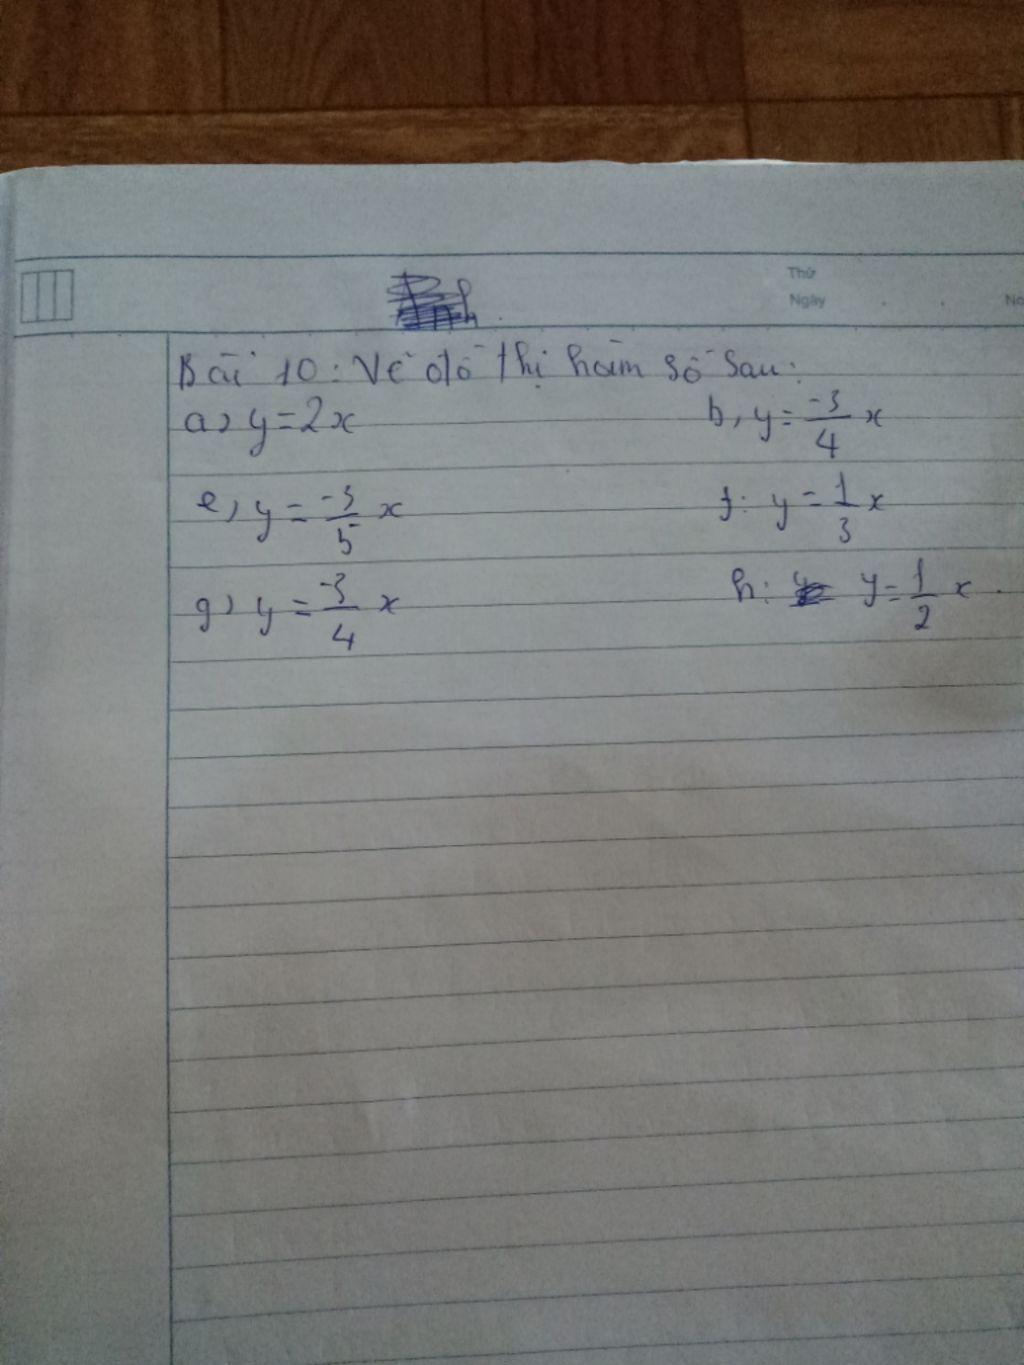 Thứ
Ngày No
Bài 10: Vẽ đồ thị hàm số sau:
a) y=2x b, y= -3/4 x
e, y = -3/5 x f: y = 1/3 x
g) y = -3/4 x h: y= 1/2 x